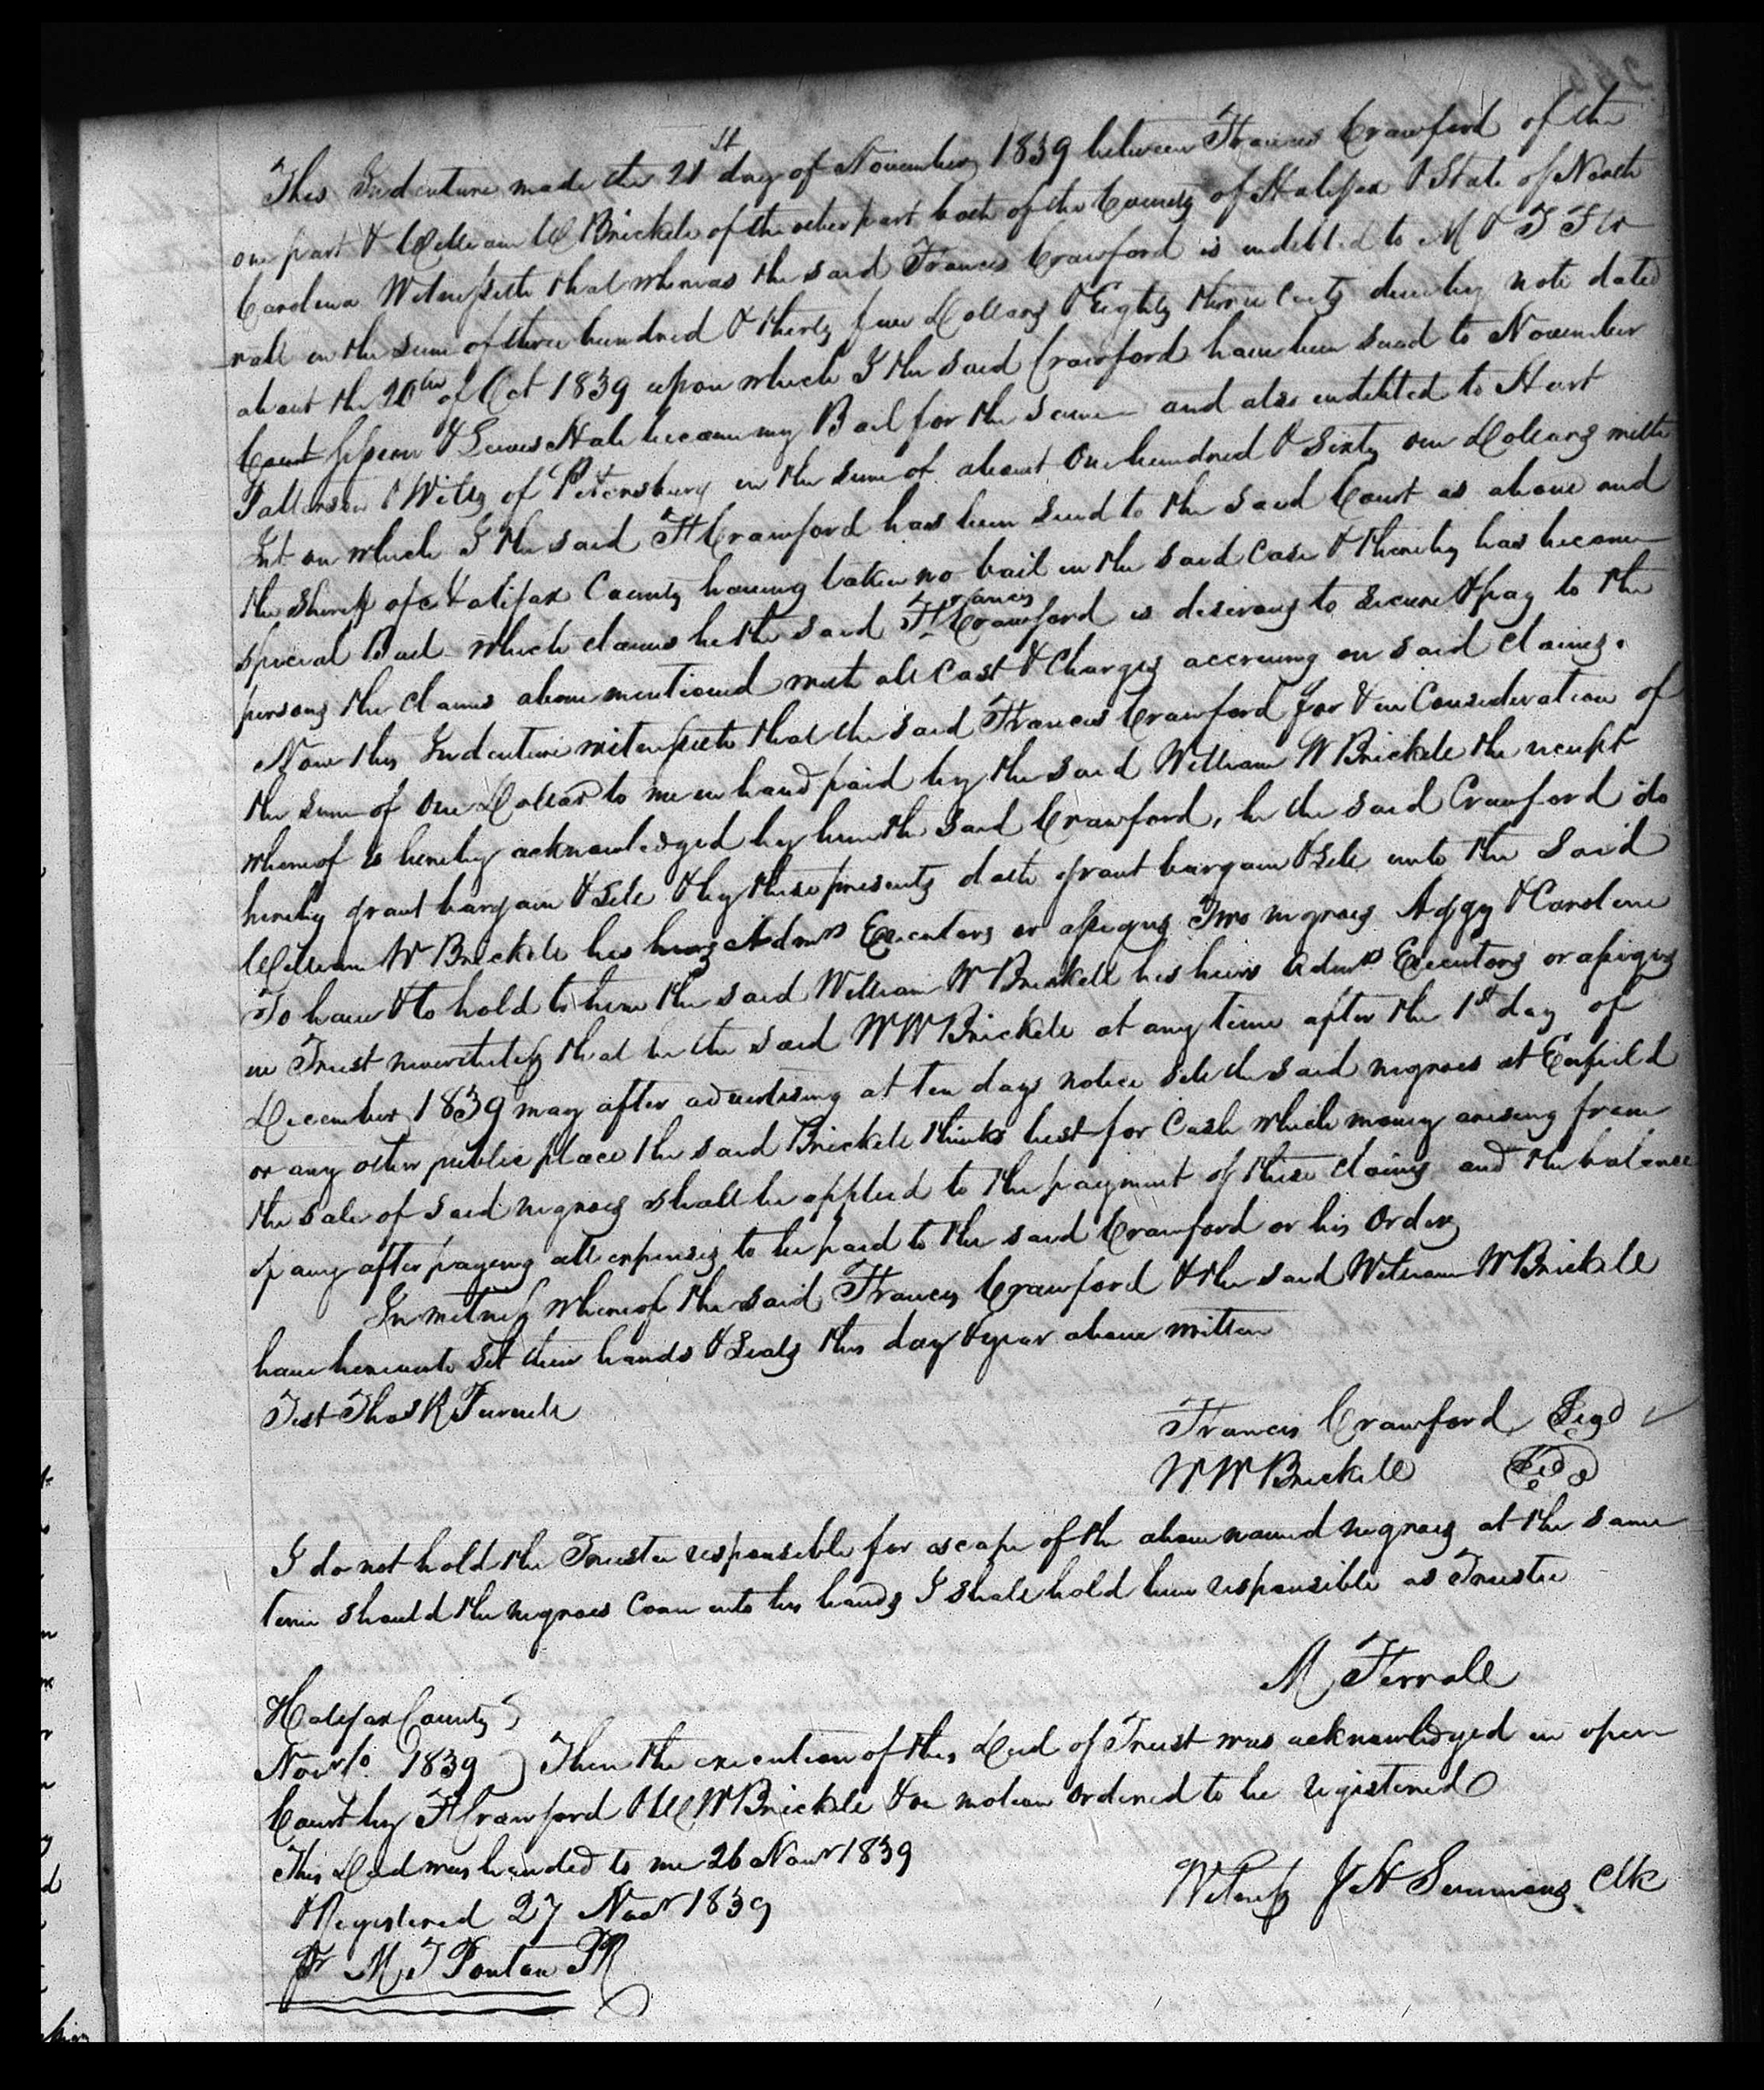 This Indenture made the 21st day of November 1839 between Francis Crawford of the
one part & William W Brickell of the other part both of the County of Halifax & State of North
Carolina Witnesseth that whereas the said Francis Crawford is indebted to M & T Fer
rall in the sum of three hundred & thirty four Dollars & Eighty three Cents due by note dated
about the 20th of Oct 1839 upon which I the said Crawford have been sued to November
Court & Lewis Hale became my Bail for the same and also indebted to Hart
Patterson & Wills of Petersburg in the sum of about One hundred & Sixty one Dollars with
Int on which I the said F Crawford has been Sued to the said Court as above and
the Sheriff of Halifax County having taken no bail in the said Case & thereby has become
special Bail which claims he the said Francis Crawford is desirous to secure & pay to the
persons the claims above mentioned with all Cost & Charges accruing on said claims.
Now this Indenture witnesseth that the said Francis Crawford for & in Consideration of
the sum of One Dollar to me in hand paid by the said William W Brickell the receipt
whereof is hereby acknowledged by him the said Crawford, he the said Crawford do
hereby grant bargain & Sell & by these presents doth grant bargain & Sell unto the Said
William W Brickell his heirs Admrs Executors or assigns Two negroes Aggy & Caroline
To have & to hold to him the said William W Brickell his heirs Admrs Executors or assigns
in Trust nevertheless that he the said W W Brickell at any time after the 1st day of
December 1839 may after advertising at ten days notice Sell the said negroes at Enfield
or any other public place the said Brickell thinks best for Cash which money arising from
the sale of said negroes shall be applied to the payment of these claims and the balance
if any after paying all expenses to be paid to the said Crawford or his Order
In witness whereof the said Francis Crawford & the said William W Brickell
have hereunto Set their hands & Seals this day & year above written
Test Thos R Purnell
Francis Crawford Seal
W W Brickell Seal
I do not hold the Trustee responsible for escape of the above named negroes at the same
time should the negroes Come into his hands I shall hold him responsible as Trustee
M Ferrall
Halifax County
Nov 1839 Then the execution of this Deed of Trust was acknowledged in open
Court by F Crawford & W W Brickell & on motion Ordered to be registered
This Deed was handed to me 26 Novr 1839
& Registered 27 Novr 1839
Pr M T Ponton PR
Witness J H Simmons Clk